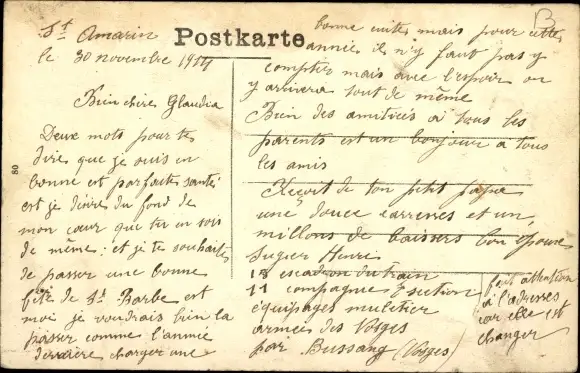 B
St Amarin
Postkarte
le 30 novembre 1914
Bien chire Glaudia
Deux mots pour te
dire que je suis en
bonne est parfaite santé
est je dsire du fond de
mon cœur que tu en sois
de même, et je te souhaite
de passer une bonne
fête de St Barbe est
moi je voudrais bien la
passer comme l'annié
dernière charger une
bonne cuite mais pour cette
année il n'y faut pas y
compter mais avec l'espoir on
y arrivera tout de même
Bien des amitiés à tous les
parents est un bonjour a tous
les amis
Reçoit de ton petit
une douce carresses et un
millons de baisers ton époux
Henri
15 escadron du train
11 compagnie section
équipages muletier
armée des Vosges
par Bussang (Vosges)
fait attention
à l'adresses
car elle est
changer
80